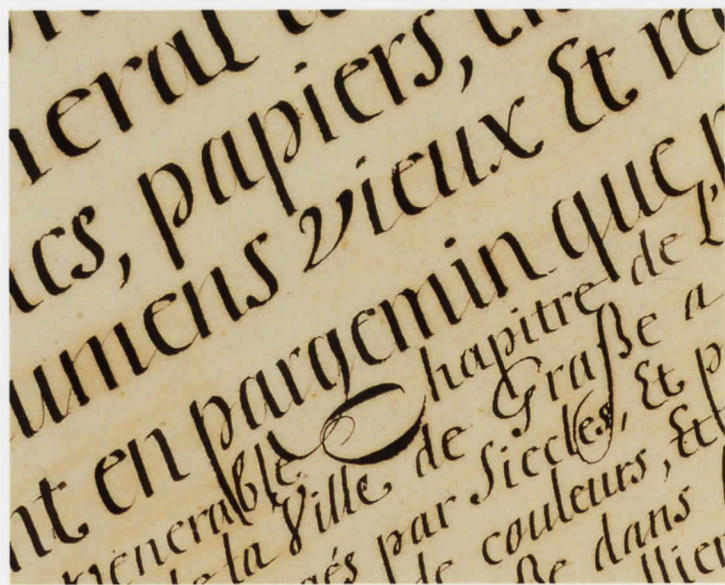 neral
cs, papiers,
umens vieux Et
nt en pargemin que
venerable Chapitre de L
de la Ville de Graße a
és par Siecles, Et p
de couleurs, Et
ße dans